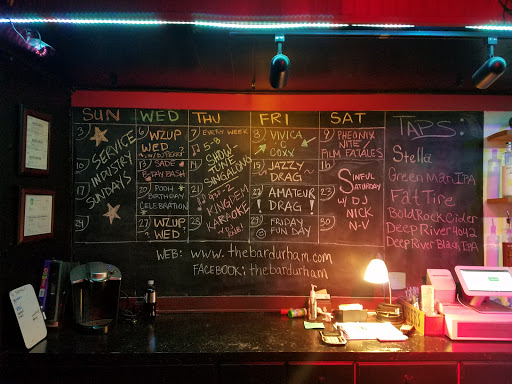 SUN WED THU FRI SAT
3 SERVICE INDUSTRY SUNDAYS
10
17
24
6 WZUP WED ?
13 SADE B-DAY BASH
20 POOH BIRTHDAY CELEBRATION
27 WZUP WED ?
7 EVERY WEEK
5-8
SHOW-TUNE SINGALONG
14
21
28
WING/EM KARAOKE
8 VIVICA C COXX
15 JAZZY DRAG
22 AMATEUR ! DRAG !
29 FRIDAY FUN DAY
9 PHEONIX NITE/ FILM FATALES
16
23
30
SINFUL SATURDAY W/ DJ NICK N-V
TAPS:
Stella
Green Man IPA
Fat Tire
Bold Rock Cider
Deep River 4042
Deep River Black IPA
WEB: www.thebardurham.com
FACEBOOK: thebardurham